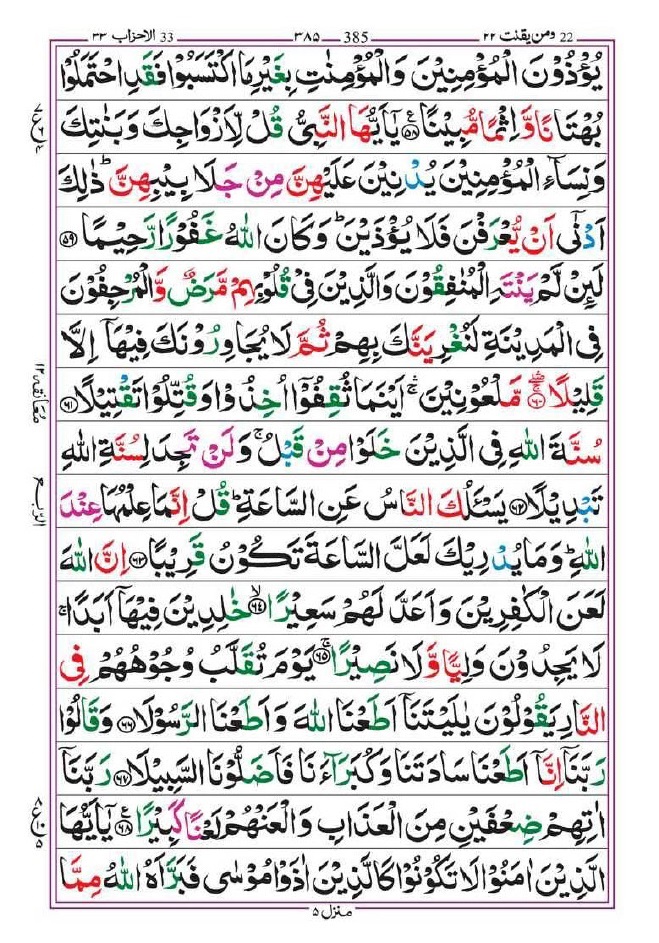 22 ومن يقنت ٢٢ 385 ٣٨٥ 33 الاحزاب ٣٣
يُؤْذُوْنَ الْمُؤْمِنِيْنَ وَالْمُؤْمِنٰتِ بِغَيْرِ مَا اكْتَسَبُوْا فَقَدِ احْتَمَلُوْا
بُهْتَانًا وَّاِثْمًا مُّبِيْنًا ۝٥٨ يٰۤاَيُّهَا النَّبِيُّ قُلْ لِّاَزْوَاجِكَ وَبَنٰتِكَ
وَنِسَآءِ الْمُؤْمِنِيْنَ يُدْنِيْنَ عَلَيْهِنَّ مِنْ جَلَابِيْبِهِنَّ ؕ ذٰلِكَ
اَدْنٰۤى اَنْ يُّعْرَفْنَ فَلَا يُؤْذَيْنَ ؕ وَكَانَ اللّٰهُ غَفُوْرًا رَّحِيْمًا ۝٥٩
لَئِنْ لَّمْ يَنْتَهِ الْمُنٰفِقُوْنَ وَالَّذِيْنَ فِيْ قُلُوْبِهِمْ مَّرَضٌ وَّالْمُرْجِفُوْنَ
فِى الْمَدِيْنَةِ لَنُغْرِيَنَّكَ بِهِمْ ثُمَّ لَا يُجَاوِرُوْنَكَ فِيْهَاۤ اِلَّا
قَلِيْلًا ۝٦٠ مَّلْعُوْنِيْنَ ۛۚ اَيْنَمَا ثُقِفُوْۤا اُخِذُوْا وَقُتِّلُوْا تَقْتِيْلًا ۝٦١
سُنَّةَ اللّٰهِ فِى الَّذِيْنَ خَلَوْا مِنْ قَبْلُ ۚ وَلَنْ تَجِدَ لِسُنَّةِ اللّٰهِ
تَبْدِيْلًا ۝٦٢ يَسْـَٔلُكَ النَّاسُ عَنِ السَّاعَةِ ؕ قُلْ اِنَّمَا عِلْمُهَا عِنْدَ
اللّٰهِ ؕ وَمَا يُدْرِيْكَ لَعَلَّ السَّاعَةَ تَكُوْنُ قَرِيْبًا ۝٦٣ اِنَّ اللّٰهَ
لَعَنَ الْكٰفِرِيْنَ وَاَعَدَّ لَهُمْ سَعِيْرًا ۙ۝٦٤ خٰلِدِيْنَ فِيْهَاۤ اَبَدًا ۚ
لَا يَجِدُوْنَ وَلِيًّا وَّلَا نَصِيْرًا ۚ۝٦٥ يَوْمَ تُقَلَّبُ وُجُوْهُهُمْ فِى
النَّارِ يَقُوْلُوْنَ يٰلَيْتَنَاۤ اَطَعْنَا اللّٰهَ وَاَطَعْنَا الرَّسُوْلَا ۝٦٦ وَقَالُوْا
رَبَّنَاۤ اِنَّاۤ اَطَعْنَا سَادَتَنَا وَكُبَرَآءَنَا فَاَضَلُّوْنَا السَّبِيْلَا ۝٦٧ رَبَّنَاۤ
اٰتِهِمْ ضِعْفَيْنِ مِنَ الْعَذَابِ وَالْعَنْهُمْ لَعْنًا كَبِيْرًا ۝٦٨ يٰۤاَيُّهَا
الَّذِيْنَ اٰمَنُوْا لَا تَكُوْنُوْا كَالَّذِيْنَ اٰذَوْا مُوْسٰى فَبَرَّاَهُ اللّٰهُ مِمَّا
منزل ٥
معانقة ١٢
الربع